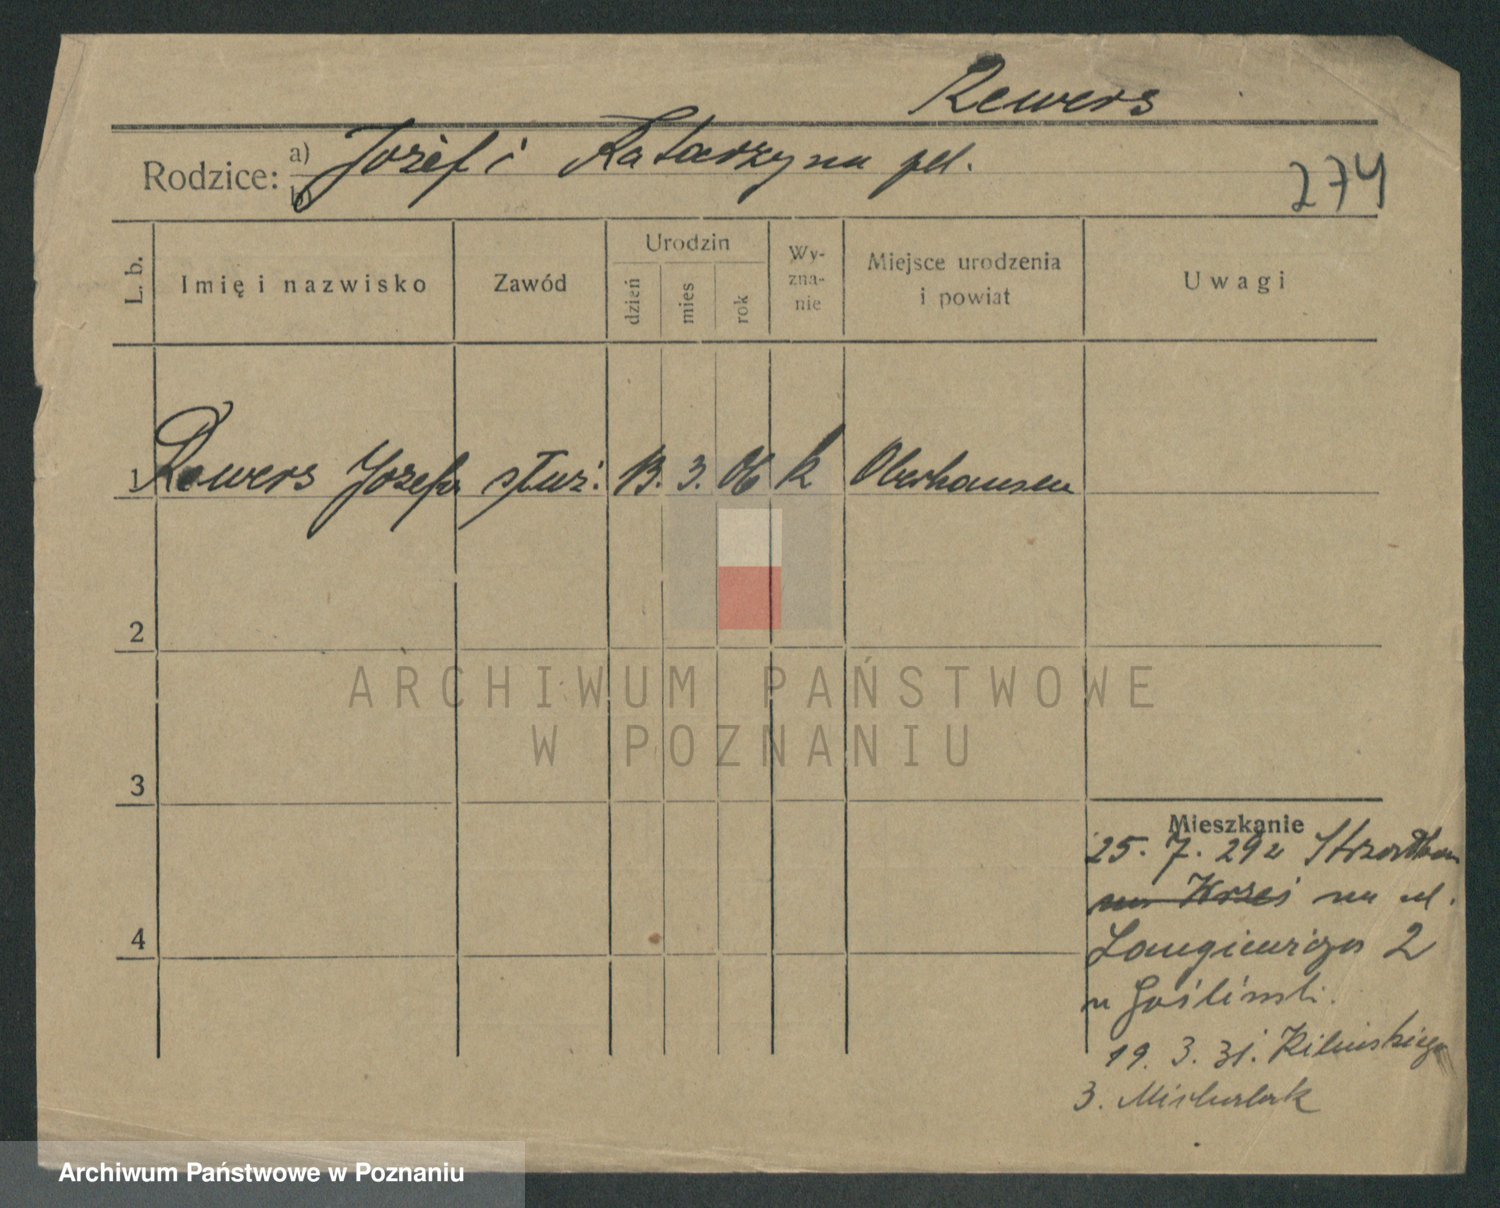 Rewers
Rodzice: a) Józef i Katarzyna
b)
274
L. b.
Imię i nazwisko
Zawód
Urodzin
dzień
mies
rok
Wy-
zna-
nie
Miejsce urodzenia
i powiat
Uwagi
1 Rewers Józefa służ. 13. 3. 06 k Oberhausen
2
3
4
ARCHIWUM PAŃSTWOWE
W POZNANIU
Mieszkanie
25. 7. 29
na ul.
Langiewicza 2
u
19. 3. 31. Kilińskiego
3. Michalak
Archiwum Państwowe w Poznaniu